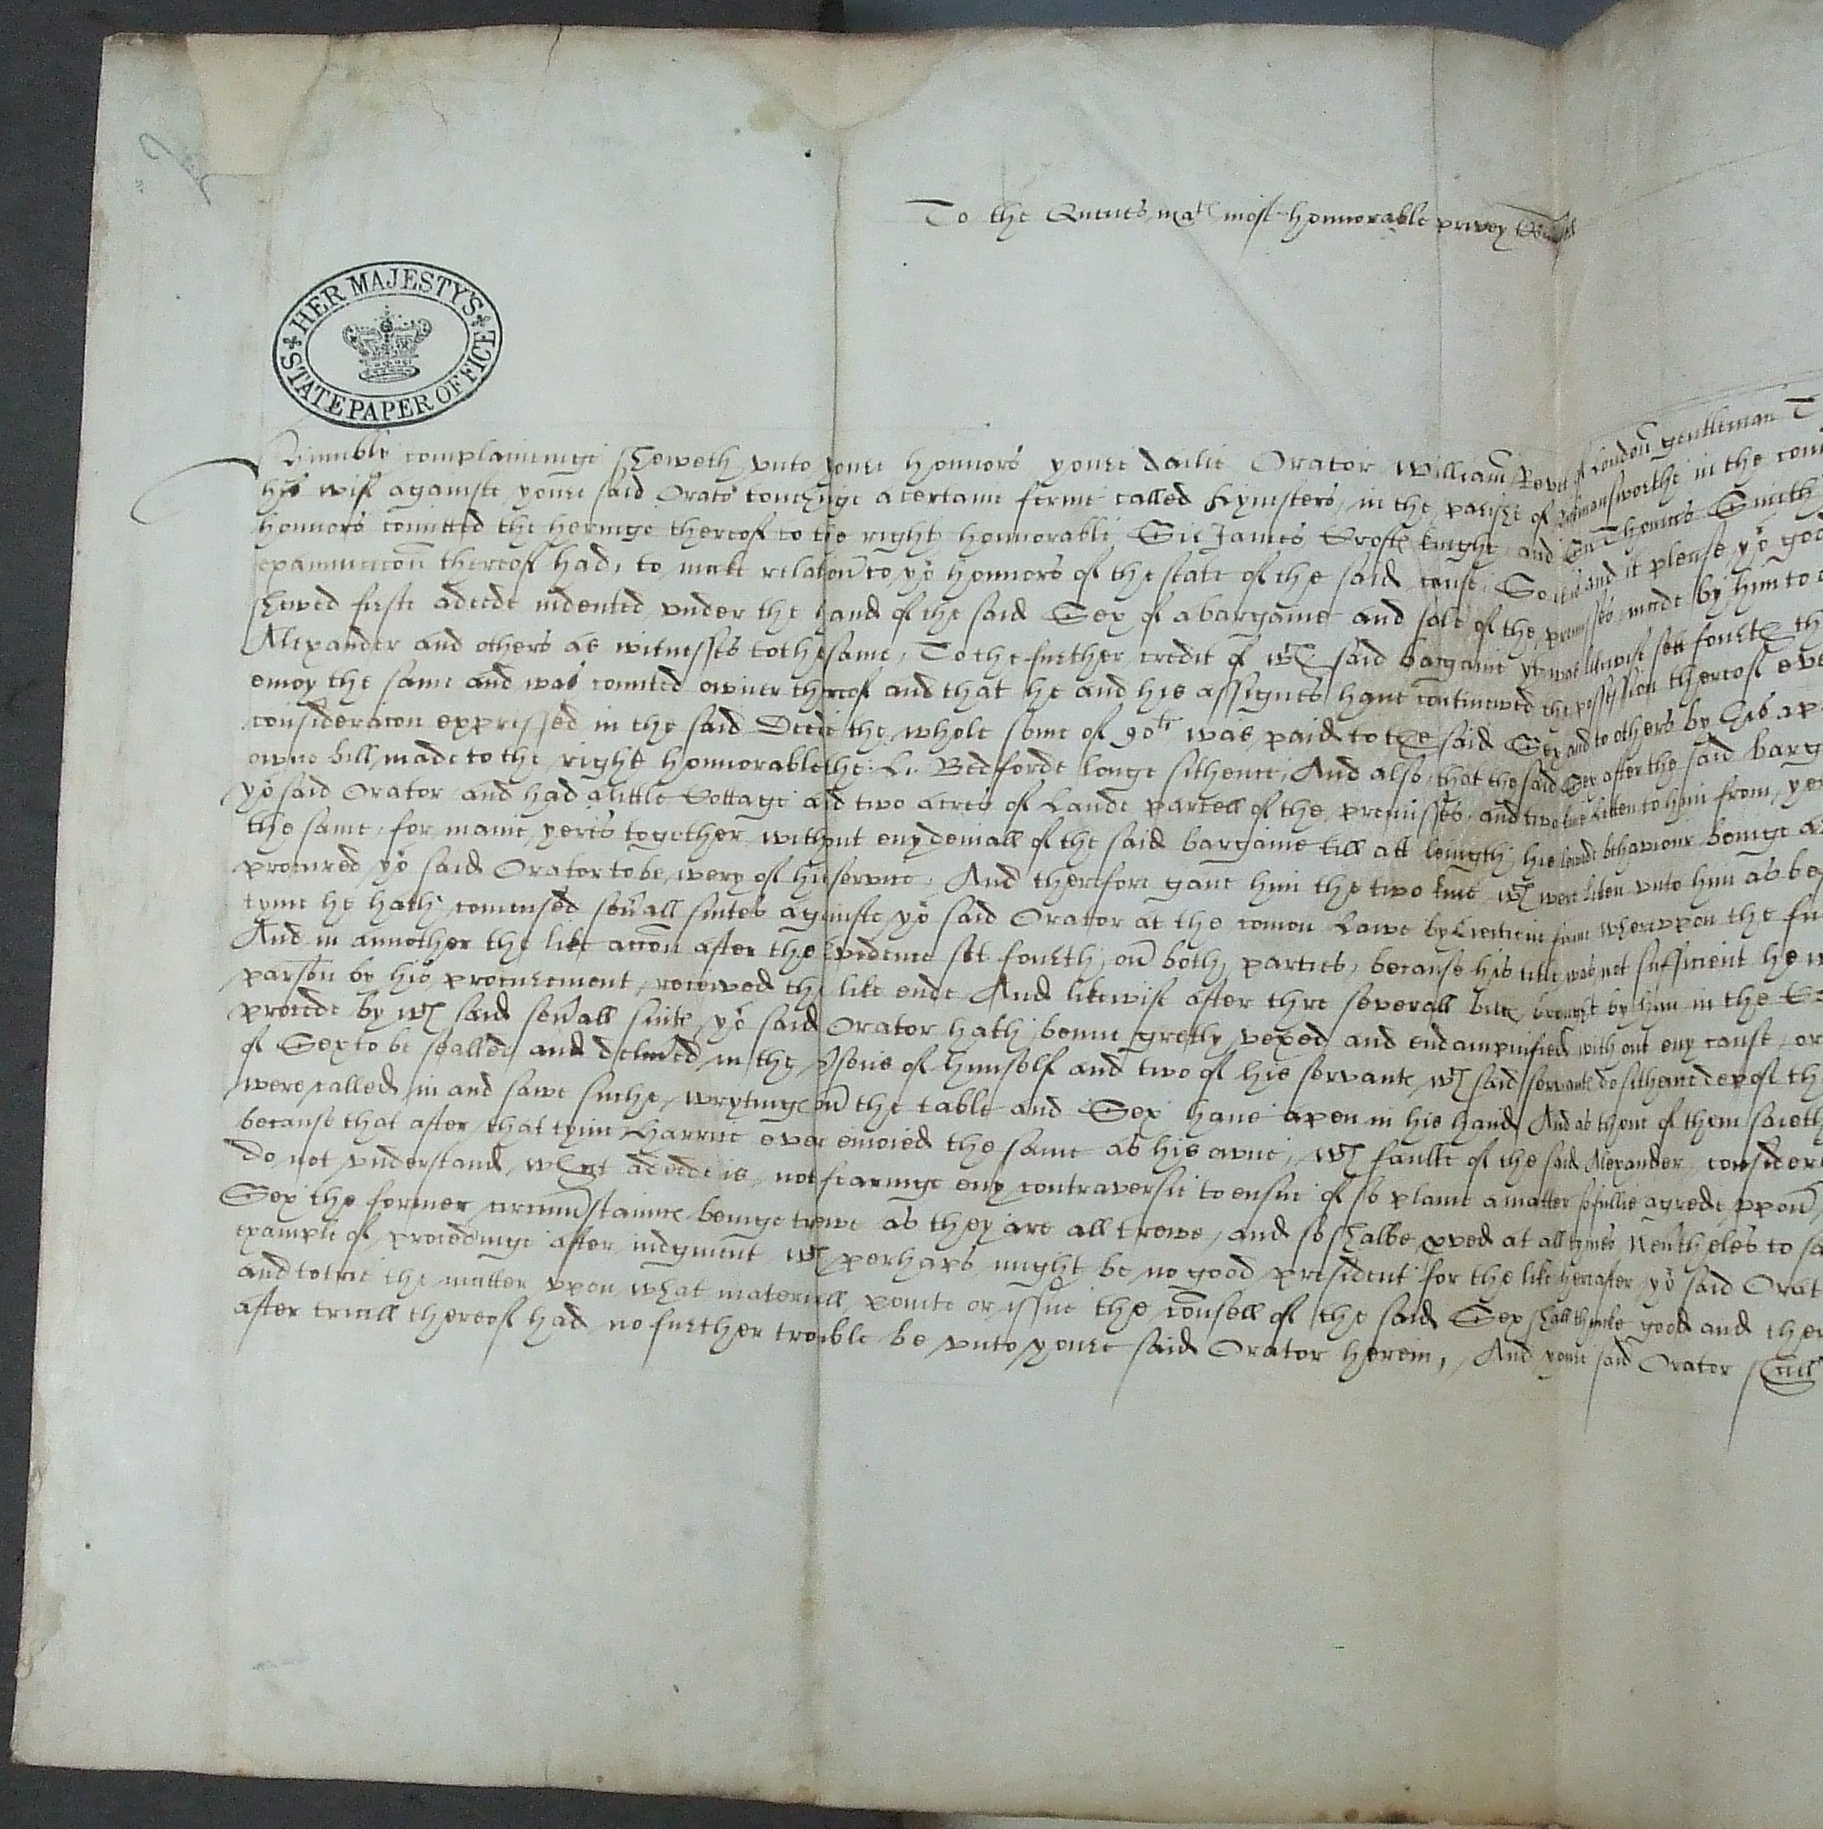 To the Quenes ma^te most honnorable privey Counsell
HER MAJESTY'S
STATE PAPER OFFICE
Humbly complaininge sheweth vnto youre honnors youre dailie Orator William Revet of London gentleman
his wif againste youre said Orator touchinge a certaine ferme called Kynesters, in the parishe of Rickmansworthe in the
honnors comitted the heringe thereof to the right honnorable Sir James Croft knight and Sir Thomas Smith
examinacon thereof had, to make relacon to yo^r honnors of the state of the said cause, So it is and it please yo^r
shewed firste a deede indented vnder the hand of the said Gex of a bargaine and sale of the premisses made by him to
Alexander and others as witnesses to the same, To the further credit of w^ch said bargaine yt was likwise sett fourth
enioy the same and was counted owner thereof and that he and his assignes have continewed the possession thereof
consideracon expressed in the said Deede the whole some of 90^li was paid to the said Gex and to others by his
owne bill made to the right honnorable the L. Bedforde longe sithence, And also that the said Gex after the said
yo^r said Orator and had a little Cottage and two acres of Lande parcell of the premisses, and two kine letten to him from
the same for manie yeres together without eny deniall of the said bargaine till att leingth his lewde behaviour beinge
procured yo^r said Orator to be wery of his service, And therefore gave him the two kine w^ch were leten vnto him as
tyme he hath comensed seu^rall suites againste yo^r said Orator at the comon Lawe by Eiectione firme wherevpon the
And in annother the like accon after the evidence set fourth on both parties, because his title was not sufficient he
parson by his procurement, receved the like ende And likewise after thre severall billes brought by him in the
procede by w^ch said seu^rall suites yo^r said Orator hath benne gretly vexed and endampnified with out eny cause, or
of Gex to be sealled and deliu^red in the p^rsens of himself and two of his servantes w^ch said servantes do sithance
were called in and sawe suche wrytinge on the table and Gex have a pen in his hand And as thone of them saieth
because that after that tyme Harrie ever enioied the same as his owne, w^ch faulte of the said Alexander,
do not vnderstand what a deede is, not fearinge eny contraversie to ensue of so plaine a matter so fullie agrede vppon
Gex the former circumstaunces beinge trewe as they are all trewe, and so shalbe p^rved at all tymes Neu^rtheles to
example of procedinge after iudgment w^ch perhaps might be no good president for the like hereafter yo^r said
and to trie the matter vpon what materiall pointe or issue the counsell of the said Gex shall thincke good and
after triall thereof had no further trouble be vnto youre said Orator herein, And youre said Orator shall